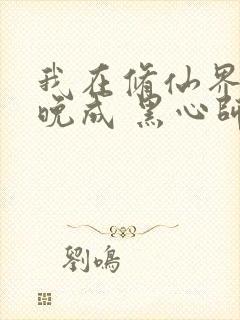 我在脩仙界
晚成 黑心師
劉鳴